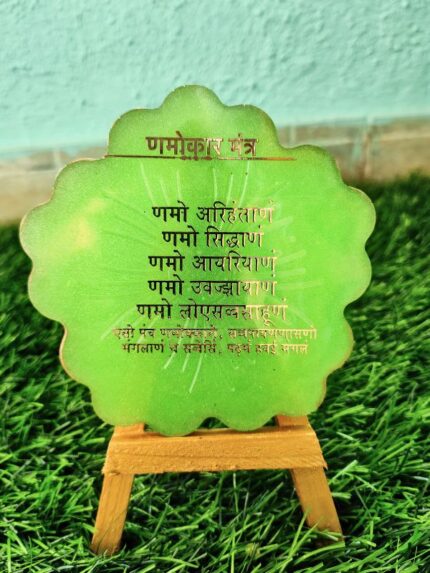 णमोकार मंत्र
णमो अरिहंताणं
णमो सिद्धाणं
णमो आयरियाणं
णमो उवज्झायाणं
णमो लोएसव्वसाहूणं
एसो पंच
मंगलाणं च सव्वेसिं, पढमं हवई मंगलं